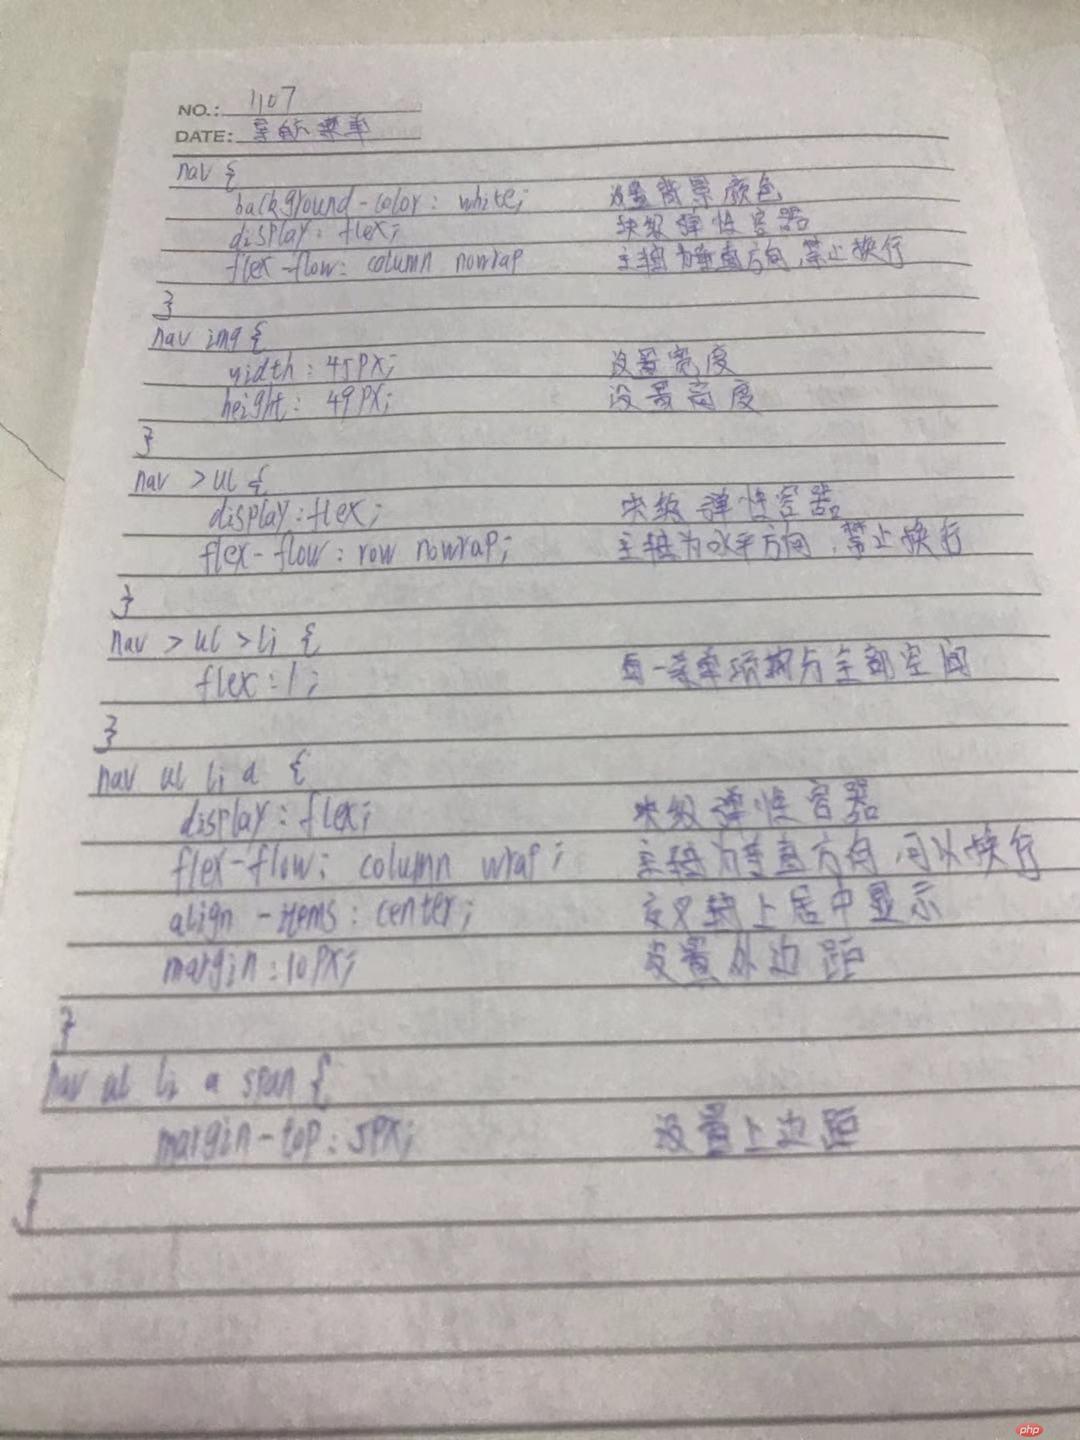 NO.: 1107
DATE: 导航菜单
nav {
background-color: white; 设置背景颜色
display: flex; 块级弹性容器
flex-flow: column nowrap 主轴为垂直方向,禁止换行
}
nav img {
width: 45PX; 设置宽度
height: 49PX; 设置高度
}
nav >ul {
display:flex; 块级弹性容器
flex-flow: row nowrap; 主轴为水平方向,禁止换行
}
nav > ul >li {
flex:1; 每一菜单项均分全部空间
}
nav ul li a {
display: flex; 块级弹性容器
flex-flow: column wrap; 主轴为垂直方向,可以换行
align-items: center; 交叉轴上居中显示
margin:10PX; 设置外边距
}
nav ul li a span {
margin-top: 5PX; 设置上边距
}
php